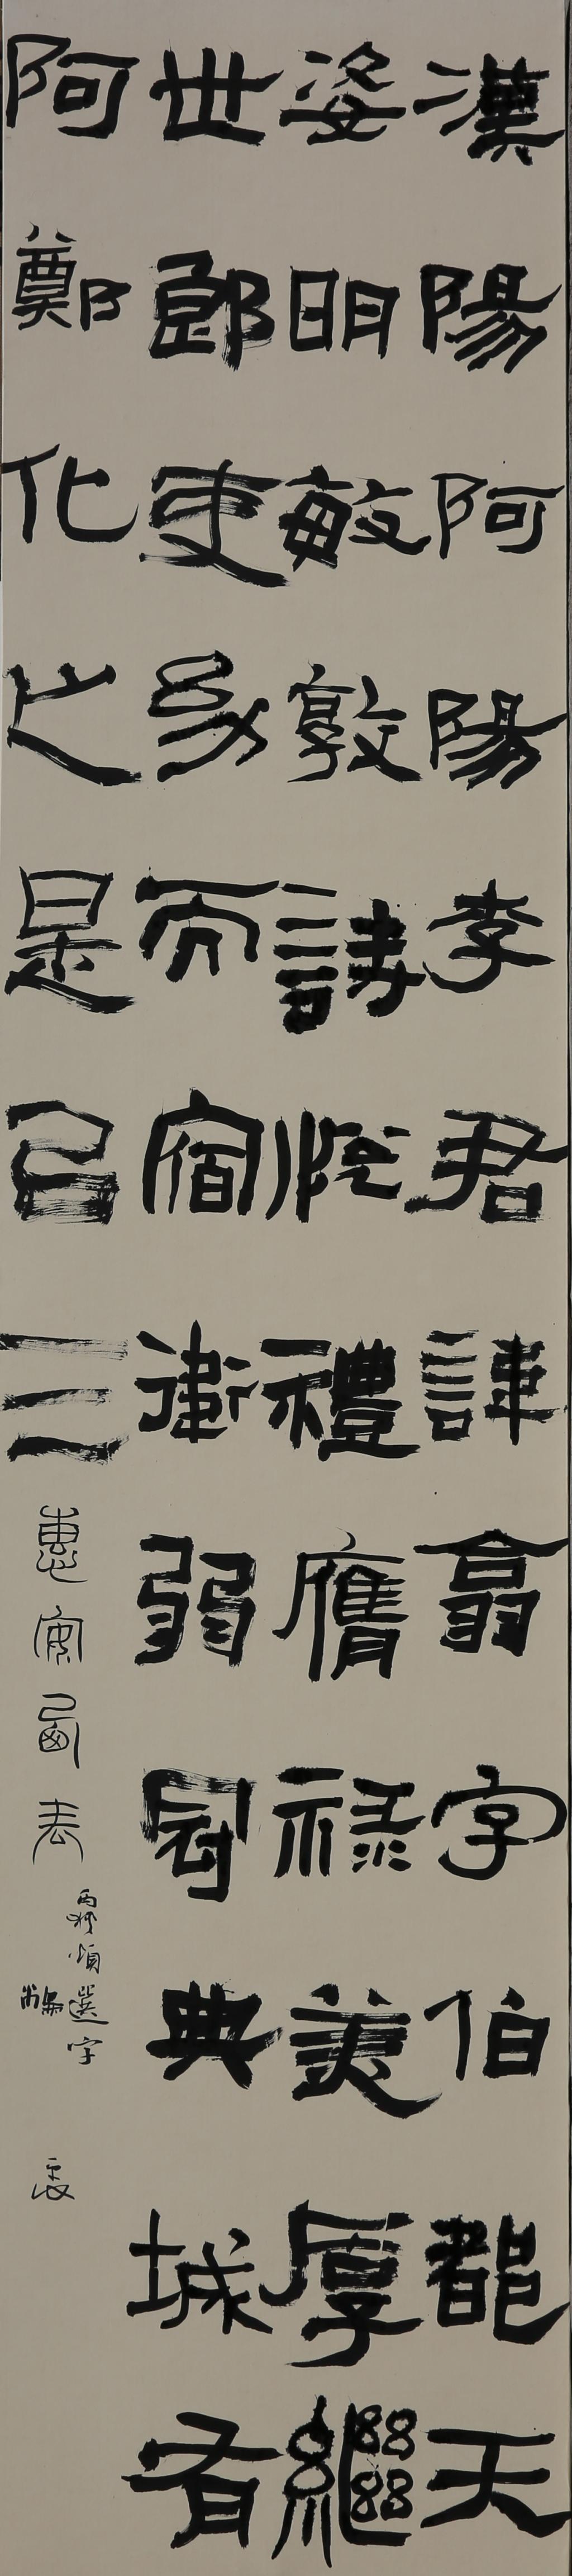 漢陽阿陽李君諱翕字伯都天
姿明敏敦詩悅禮膺祿美厚繼
世郎吏幼而宿衛弱冠典城有
阿鄭化之是㠯三
惠安
西狹頌選字